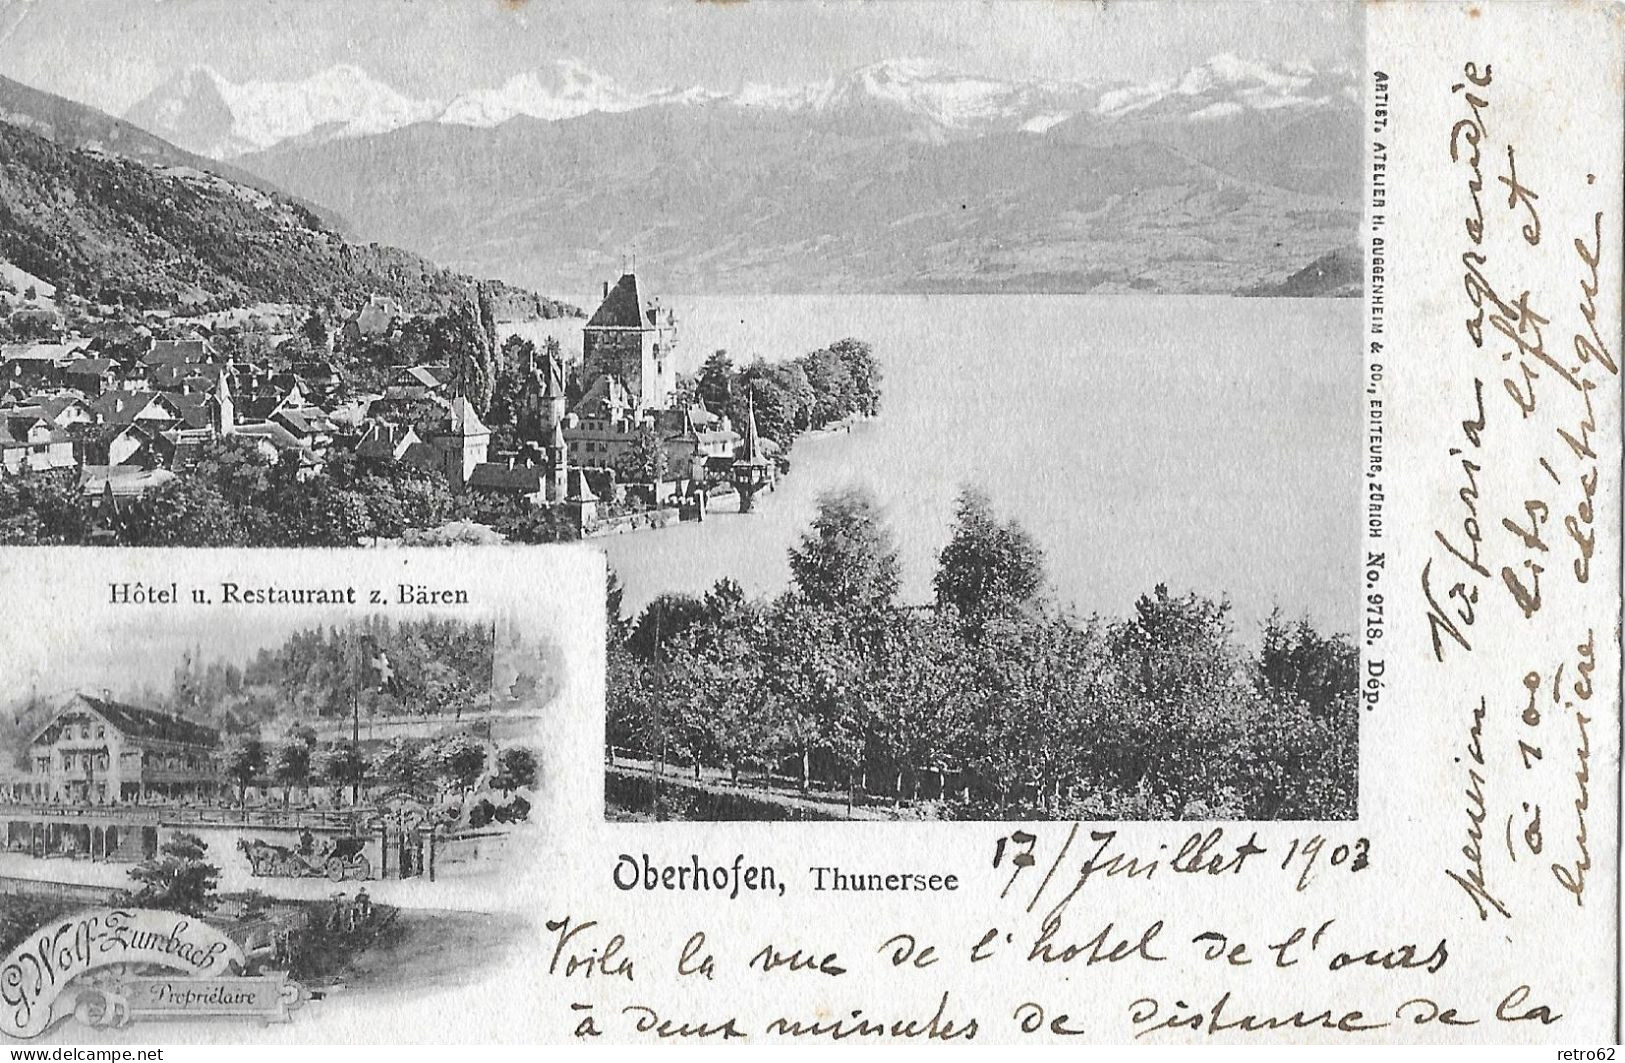 ARTIST. ATELIER H. GUGGENHEIM & CO., EDITEURS, ZÜRICH No. 9718. Dép.
Hôtel u. Restaurant z. Bären
G. Wolf-Zumbach
Propriétaire
Oberhofen, Thunersee
17/Juillet 1903
Voila la vue de l'hotel de l'ours
à deux minutes de distance de la
pension Victoria agrandie
à 100 lits, lift et
lumière électrique.
retro62